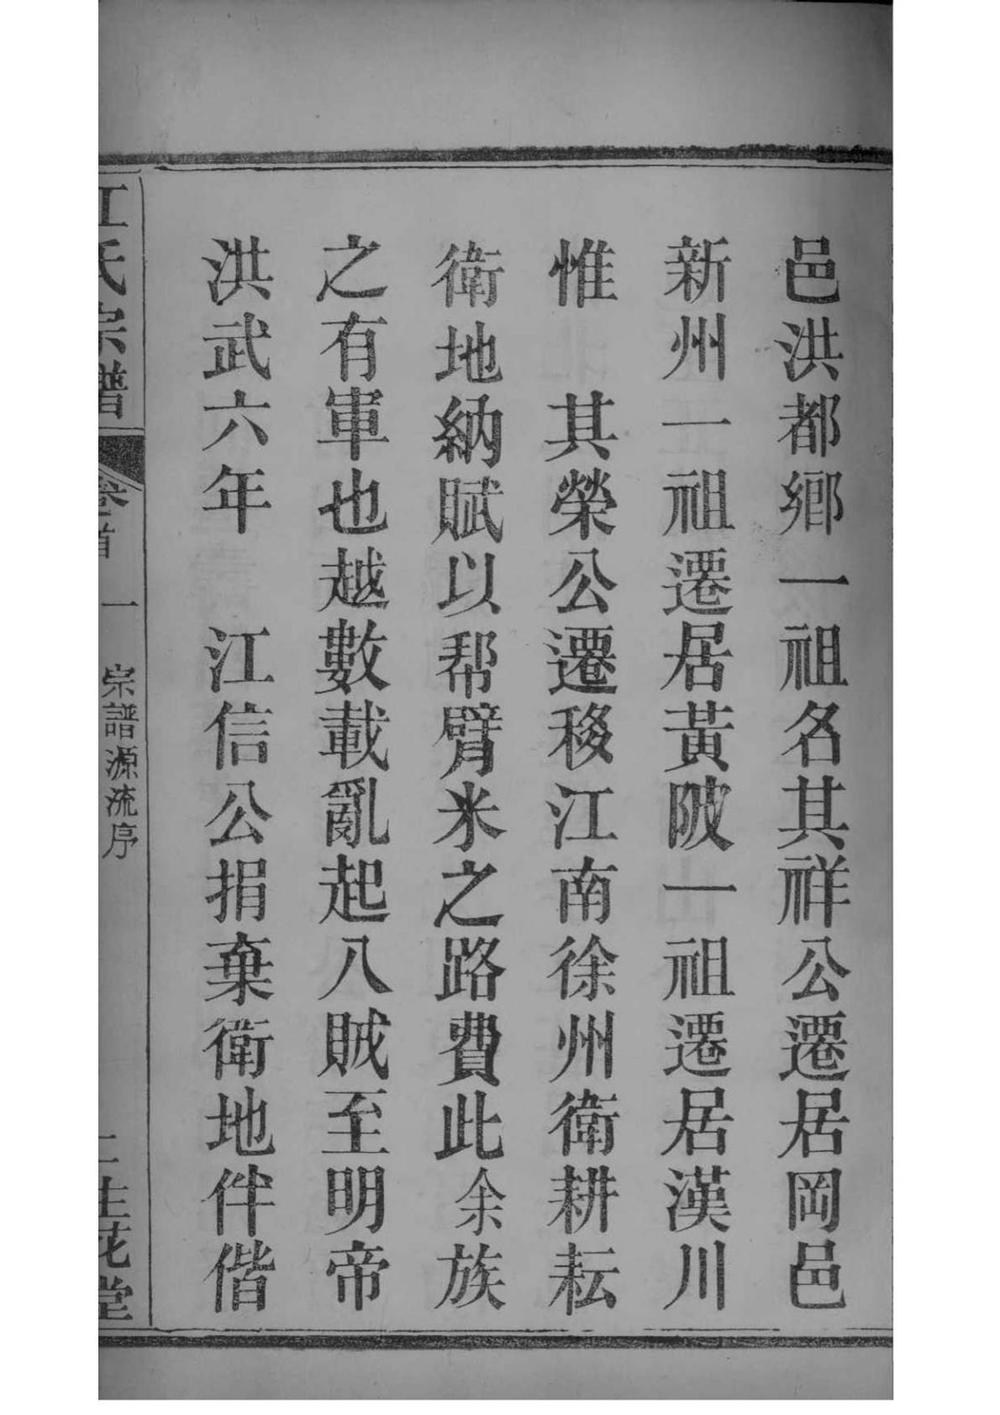 邑洪都鄉一祖名其祥公遷居岡邑
新州一祖遷居黃陂一祖遷居漢川
惟　其榮公遷移江南徐州衛耕耘
衛地納賦以帮臂米之路費此余族
之有軍也越數載亂起八賊至明帝
洪武六年　江信公捐棄衛地伴偕
江氏宗譜　卷首　一　宗譜源流序　二　生花堂